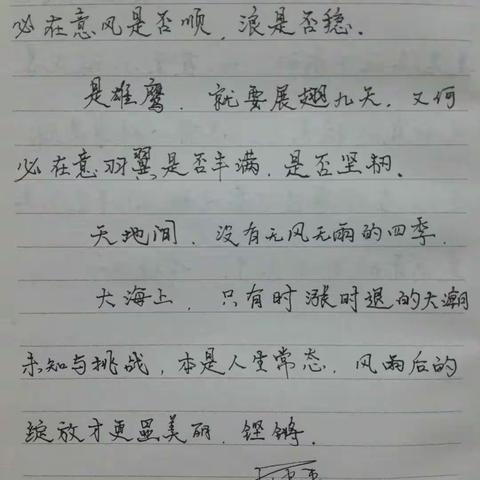 必在意风是否顺，浪是否稳．
是雄鹰，就要展翅九天，又何
必在意羽翼是否丰满，是否坚韧．
天地间，没有无风无雨的四季．
大海上，只有时涨时退的大潮
未知与挑战，本是人生常态，风雨后的
绽放才更显美丽、铿锵．